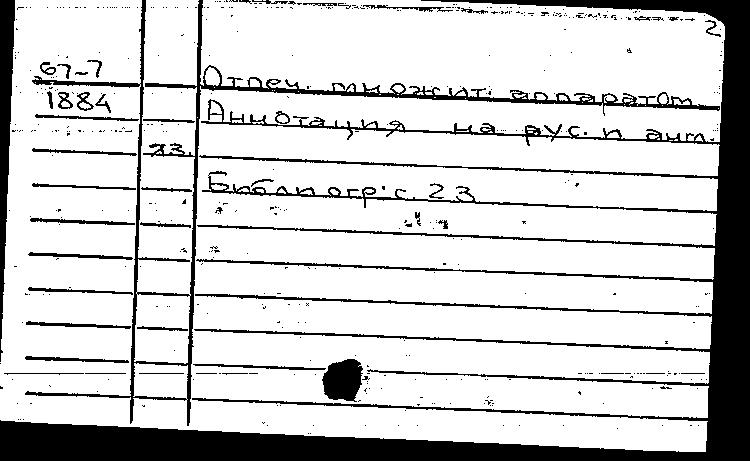 2
67-7
Отпеч. множит. аппаратом
1884
Аннотация на рус. и англ.
яз.
Библиогр: с. 23